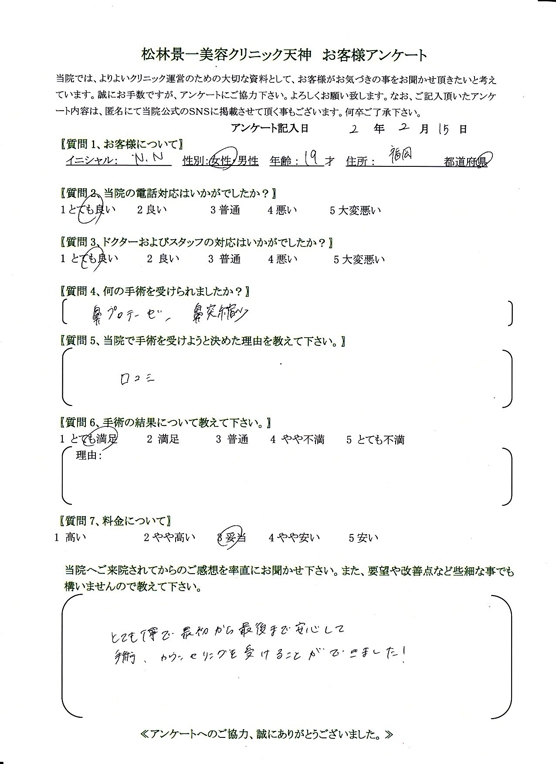 松林景一美容クリニック天神 お客様アンケート
当院では、よりよいクリニック運営のための大切な資料として、お客様がお気づきの事をお聞かせ頂きたいと考え
ています。誠にお手数ですが、アンケートにご協力下さい。よろしくお願い致します。なお、ご記入頂いたアンケ
ート内容は、匿名にて当院公式のSNSに掲載させて頂く事もございます。何卒ご了承下さい。
アンケート記入日 2 年 2 月 15 日
【質問1、お客様について】
イニシャル: N.N 性別:女性・男性 年齢:19才 住所: 福岡 都道府県
【質問2、当院の電話対応はいかがでしたか?】
1 とても良い 2 良い 3 普通 4 悪い 5 大変悪い
【質問3、ドクターおよびスタッフの対応はいかがでしたか?】
1 とても良い 2 良い 3 普通 4 悪い 5 大変悪い
【質問4、何の手術を受けられましたか?】
鼻プロテーゼ、 鼻尖縮小
【質問5、当院で手術を受けようと決めた理由を教えて下さい。】
口コミ
【質問6、手術の結果について教えて下さい。】
1 とても満足 2 満足 3 普通 4 やや不満 5 とても不満
理由:
【質問7、料金について】
1 高い 2 やや高い 3 妥当 4 やや安い 5 安い
当院へご来院されてからのご感想を率直にお聞かせ下さい。また、要望や改善点など些細な事でも
構いませんので教えて下さい。
とても丁寧で最初から最後まで安心して
手術、カウンセリングを受けることができました!
≪アンケートへのご協力、誠にありがとうございました。≫